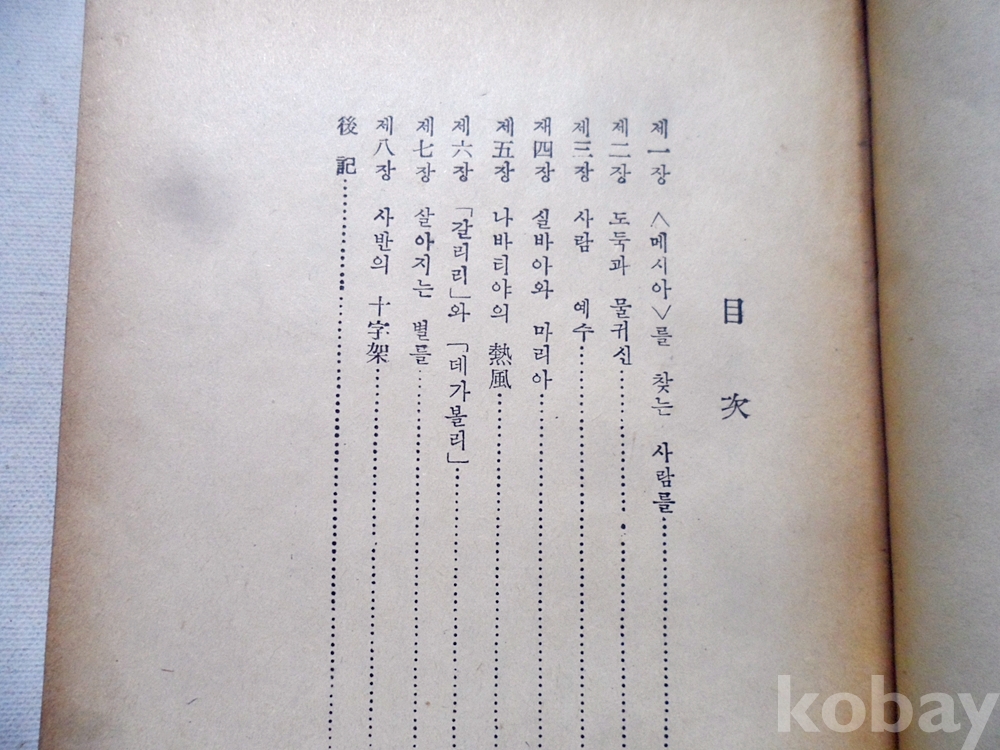 目次
제一장 〈메시아〉를 찾는 사람들
제二장 도둑과 물귀신
제三장 사람 예수
재四장 실바아와 마리아
제五장 나바티야의 熱風
제六장 「갈리리」와 「데가볼리」
제七장 살아지는 별들
제八장 사반의 十字架
後記
kobay